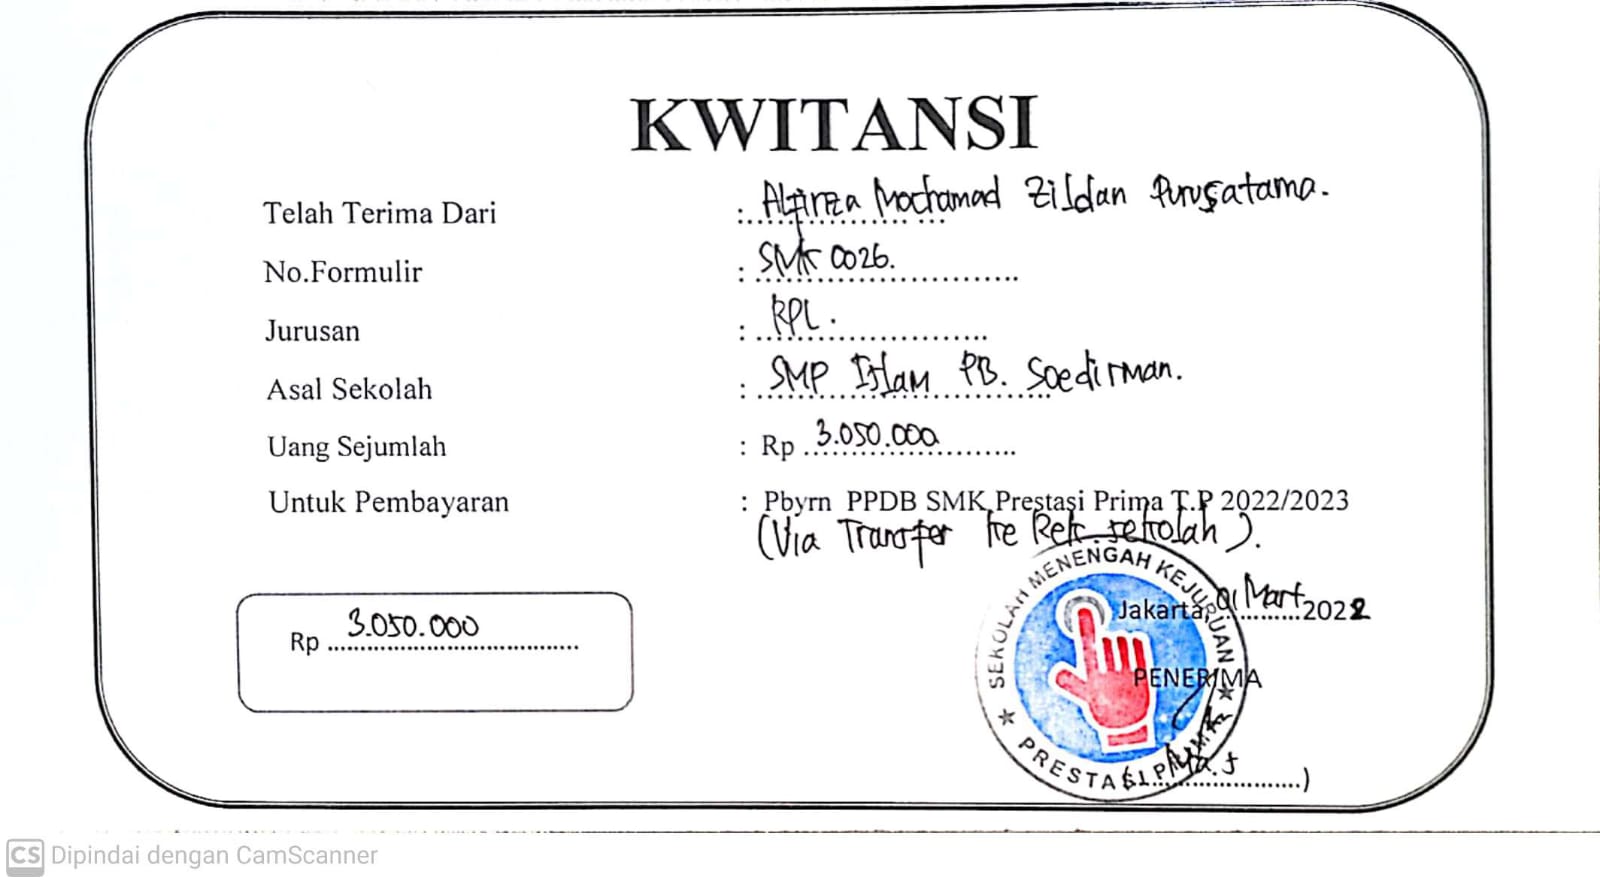 KWITANSI
Telah Terima Dari : Alfirza Mochamad Zildan Purusatama.
No.Formulir : SMK 0026.
Jurusan : RPL.
Asal Sekolah : SMP Islam PB. Soedirman.
Uang Sejumlah : Rp 3.050.000
Untuk Pembayaran : Pbyrn PPDB SMK Prestasi Prima T.P 2022/2023
(Via Transfer ke Rek. sekolah).
SEKOLAH MENENGAH KEJURUAN
Jakarta, 01 Mart 2022
Rp 3.050.000
PENERIMA
PRESTASI PRIMA
CS Dipindai dengan CamScanner